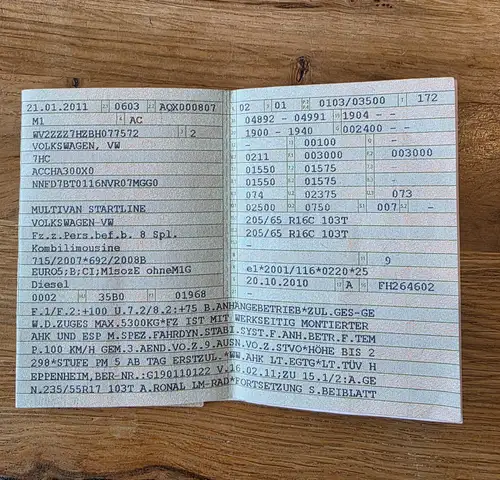 21.01.2011 0603 AQX000807
M1 AC
WV2ZZZ7HZBH077572 2
VOLKSWAGEN, VW
7HC
ACCHA300X0
NNFD7BT0116NVR07MGG0
MULTIVAN STARTLINE
VOLKSWAGEN-VW
Fz.z.Pers.bef.b. 8 Spl.
Kombilimousine
715/2007*692/2008B
EURO5;B;CI;M1sozE ohneM1G
Diesel
0002 35B0 01968
02 01 0103/03500 172
04892 - 04991 1904 - -
1900 - 1940 002400 - -
- 00100 -
0211 003000 003000
01550 01575 - -
01550 01575 - -
074 02375 073
02500 0750 007 -
205/65 R16C 103T
205/65 R16C 103T
-
-
- 9
e1*2001/116*0220*25
20.10.2010 A FH264602
F.1/F.2:+100 U.7.2/8.2:+75 B.ANHANGEBETRIEB*ZUL.GES-GE
W.D.ZUGES MAX.5300KG*FZ IST MIT WERKSEITIG MONTIERTER
AHK UND ESP M.SPEZ.FAHRDYN.STABI.SYST.F.ANH.BETR.F.TEM
P.100 KM/H GEM.3.AEND.VO.Z.9.AUSN.VO.Z.STVO*HÖHE BIS 2
298*STUFE PM 5 AB TAG ERSTZUL.*WW.AHK LT.EGTG*LT.TÜV H
EPPENHEIM,BER-NR.:G190110122 V.16.02.11;ZU 15.1/2:A.GE
N.235/55R17 103T A.RONAL LM-RAD*FORTSETZUNG S.BEIBLATT